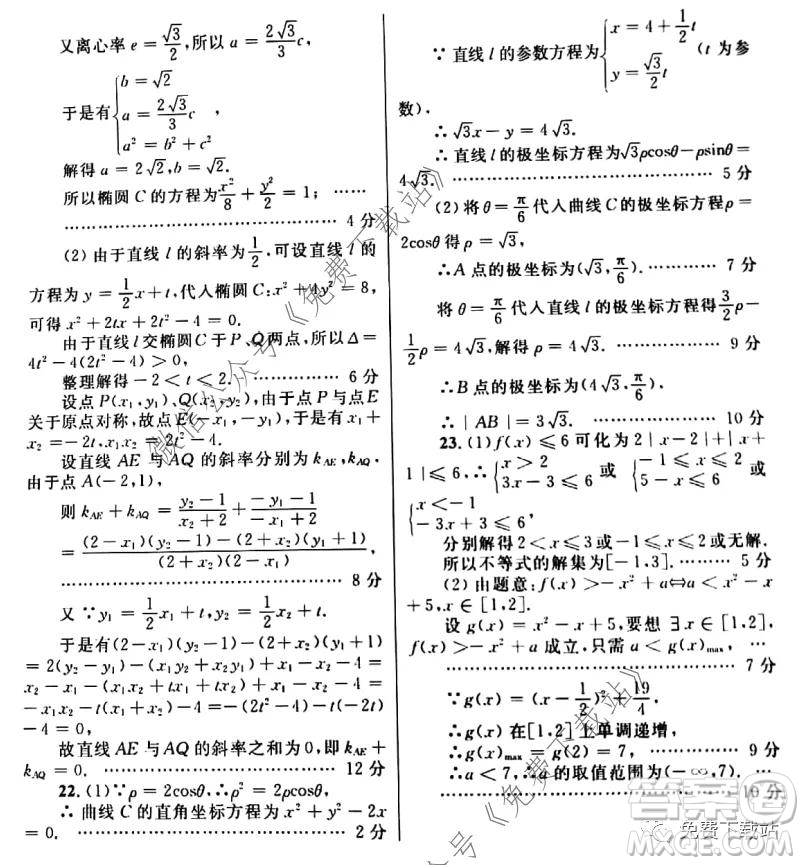 又离心率 e = √3/2, 所以 a = 2√3/3 c,
于是有 { b = √2
a = 2√3/3 c ,
a² = b² + c²
解得 a = 2√2, b = √2.
所以椭圆 C 的方程为 x²/8 + y²/2 = 1; ……
………………………………… 4 分
(2) 由于直线 l 的斜率为 1/2, 可设直线 l 的
方程为 y = 1/2 x + t, 代入椭圆 C: x² + 4y² = 8,
可得 x² + 2tx + 2t² − 4 = 0.
由于直线 l 交椭圆 C 于 P、Q 两点, 所以 Δ =
4t² − 4(2t² − 4) > 0,
整理解得 −2 < t < 2. ……………… 6 分
设点 P(x₁, y₁)、Q(x₂, y₂), 由于点 P 与点 E
关于原点对称, 故点 E(−x₁, −y₁), 于是有 x₁ +
x₂ = −2t, x₁x₂ = 2t² − 4.
设直线 AE 与 AQ 的斜率分别为 k_AE, k_AQ,
由于点 A(−2,1),
则 k_AE + k_AQ = (y₂−1)/(x₂+2) + (−y₁−1)/(−x₁+2)
= ((2−x₁)(y₂−1) − (2+x₂)(y₁+1))/((2+x₂)(2−x₁)),
………………………………… 8 分
又 ∵ y₁ = 1/2 x₁ + t, y₂ = 1/2 x₂ + t.
于是有(2−x₁)(y₂−1)−(2+x₂)(y₁+1)
= 2(y₂−y₁)−(x₁y₂+x₂y₁)+x₁−x₂−4 =
x₂−x₁−(x₁x₂+tx₁+tx₂)+x₁−x₂−4
= −x₁x₂−t(x₁+x₂)−4=−(2t²−4)−t(−2t)−
4 = 0,
故直线 AE 与 AQ 的斜率之和为 0, 即 k_AE +
k_AQ = 0. ………………………… 12 分
22. (1) ∵ρ = 2cosθ, ∴ρ² = 2ρcosθ,
∴ 曲线 C 的直角坐标方程为 x² + y² − 2x
= 0. ……………………………… 2 分
∵ 直线 l 的参数方程为 { x = 4 + 1/2 t
y = √3/2 t (t 为参
数).
∴ √3x − y = 4√3.
∴ 直线 l 的极坐标方程为 √3ρcosθ − ρsinθ =
4√3. ……………………………… 5 分
(2) 将 θ = π/6 代入曲线 C 的极坐标方程 ρ =
2cosθ 得 ρ = √3,
∴ A 点的极坐标为 (√3, π/6). ………… 7 分
将 θ = π/6 代入直线 l 的极坐标方程得 3/2 ρ −
1/2 ρ = 4√3, 解得 ρ = 4√3. …………… 9 分
∴ B 点的极坐标为 (4√3, π/6).
∴ |AB| = 3√3. ……………… 10 分
23. (1) f(x) ≤ 6 可化为 2|x−2|+|x+
1| ≤ 6, ∴ { x > 2
3x − 3 ≤ 6 或 { −1 ≤ x ≤ 2
5 − x ≤ 6 或
{ x < −1
−3x + 3 ≤ 6,
分别解得 2 < x ≤ 3 或 −1 ≤ x ≤ 2 或无解.
所以不等式的解集为[−1,3]. ……… 5 分
(2) 由题意: f(x) > −x² + a ⇔ a < x² − x
+ 5, x ∈ [1,2].
设 g(x) = x² − x + 5, 要想 ∃x ∈ [1,2],
f(x) > −x² + a 成立, 只需 a < g(x)max,
………………………………… 7 分
∵ g(x) = (x − 1/2)² + 19/4,
∴ g(x) 在[1,2]上单调递增,
∴ g(x)max = g(2) = 7, ………… 9 分
∴ a < 7, ∴ a 的取值范围为(−∞,7).
………………………………… 10 分
微信公众号《免费下载站》
微信公众号《免费下载站》
答案圈
免费下载站